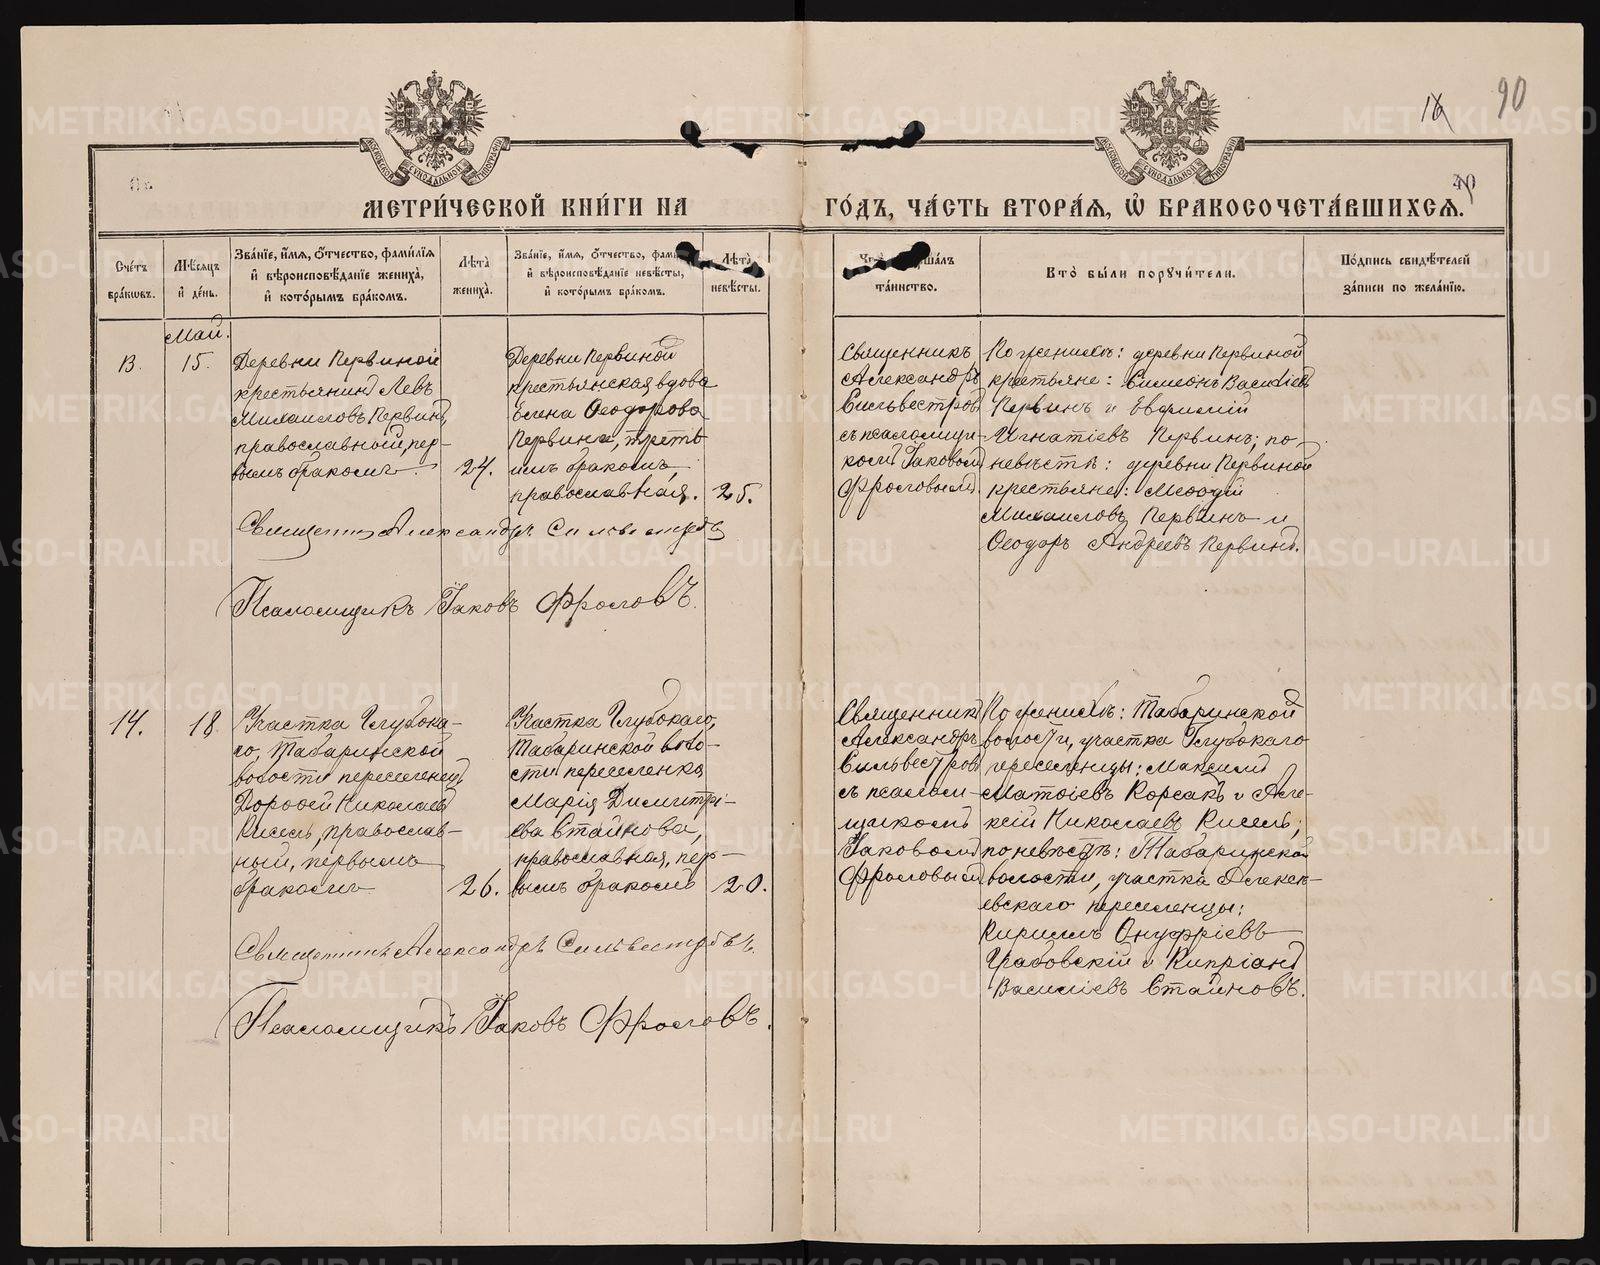 18 90
МОСКОВСКОЙ СѴНОДАЛЬНОЙ ТИПОГРАФІИ
МОСКОВСКОЙ СѴНОДАЛЬНОЙ ТИПОГРАФІИ
МЕТРИ́ЧЕСКОЙ КНИ́ГИ НА ГО́ДЪ, ЧА́СТЬ ВТОРА́Я, Ѽ БРАКОСОЧЕТА́ВШИХСЯ.
Сче́тъ бра́кѡвъ.
Мѣ́сяцъ и҆ де́нь.
Зва́нїе, и҆́мя, ѻ҆́тчество, фами́лїя
и҆ вѣроисповѣ́данїе жениха̀,
и҆ кото́рымъ бра́комъ.
Лѣ́та жениха̀.
Зва́нїе, и҆́мя, ѻ҆́тчество,
и҆ вѣроисповѣ́данїе невѣ́сты,
и҆ кото́рымъ бра́комъ.
Лѣ́та невѣ́сты.
та́инство.
Кто̀ бы́ли порꙋчи́тели.
По́дпись свидѣ́телей
за́писи по жела́нїю.
Май.
13. 15.
Деревни Первиной
крестьянинъ Левъ
Михаиловъ Первинъ,
православный, пер-
вымъ бракомъ.
24.
Деревни Первиной
крестьянская вдова
Елена Ѳеодорова
Первина, треть-
имъ бракомъ,
православная.
25.
Священникъ
Александръ
Сильвестровъ
съ псаломщи-
комъ Іаковомъ
Фроловымъ
По женихѣ: деревни Первиной
крестьяне: Симеонъ Василіевъ
Первинъ и Евфимій
Игнатіевъ Первинъ; по
невѣстѣ: деревни Первиной
крестьяне: Меѳодій
Михаиловъ Первинъ и
Ѳеодоръ Андреевъ Первинъ.
Священникъ Александръ Сильвестровъ
Псаломщикъ Іаковъ Фроловъ.
14. 18
Участка Глубока-
го, Табаринской
волости переселенецъ
Дороѳей Николаевъ
Кисель, православ-
ный, первымъ
бракомъ
26.
Участка Глубокаго,
Табаринской воло-
сти переселенка
Марія Димитрі-
ева Стаинова,
православная, пер-
вымъ бракомъ
20.
Священникъ
Александръ
Сильвестровъ
съ псалом-
щикомъ
Іаковомъ
Фроловымъ
По женихѣ: Табаринской
волости, участка Глубокаго
переселенцы: Максимъ
Матѳіевъ Корсакъ и Але-
ксій Николаевъ Кисель;
по невѣстѣ: Табаринской
волости, участка Алексѣ-
евскаго переселенцы:
Кириллъ Онуфріевъ
Грабовскій и Кипріанъ
Василіевъ Стаиновъ.
Священникъ Александръ Сильвестровъ.
Псаломщикъ Іаковъ Фроловъ.
METRIKI.GASO-URAL.RU